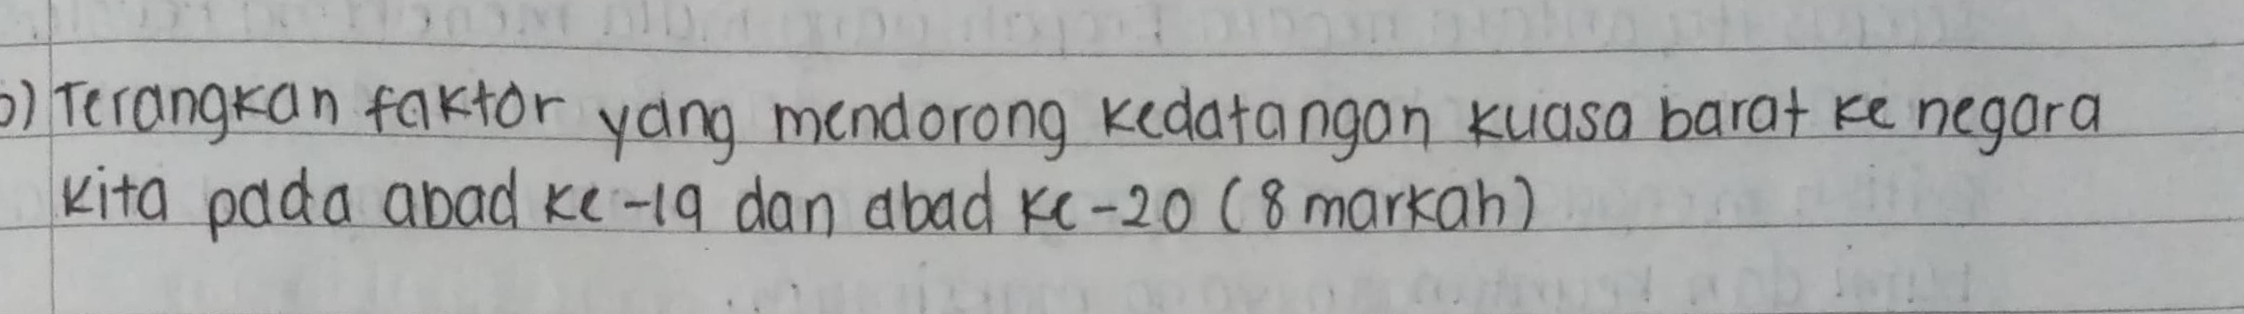 b) Terangkan faktor yang mendorong kedatangan kuasa barat ke negara
kita pada abad ke-19 dan abad ke-20 (8 markah)